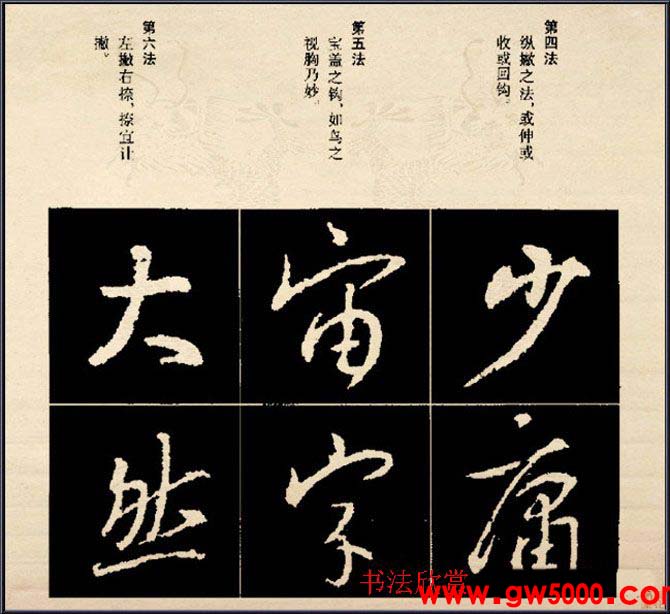 第四法
纵撇之法，或伸或
收或回钩。
第五法
宝盖之钩，如鸟之
视胸乃妙。
第六法
左撇右捺，捺宜让
撇。
少
庸
宙
字
大
然
书法欣赏
www.gw5000.com